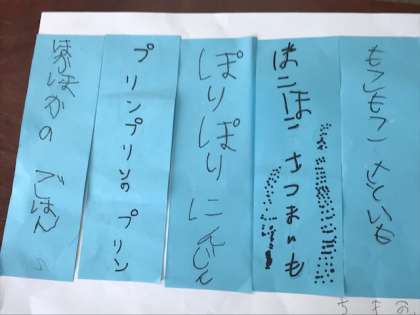 もこもこ さといも
ほこほこ さつまいも
ぽりぽり にんじん
プリンプリンの プリン
ほかほかの ごはん